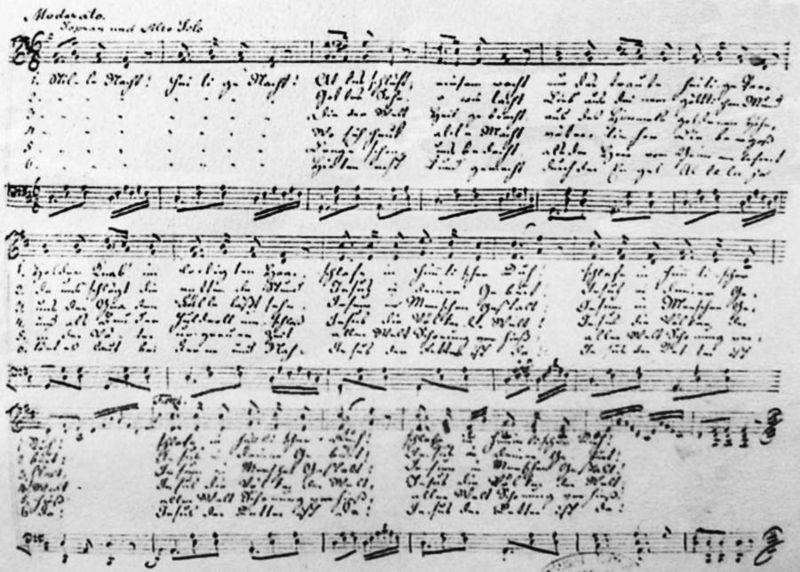 Moderato.
Sopran und Alto Solo
1. Stille Nacht! heilige Nacht! Alles schläft; einsam wacht nur das traute heilige Paar
2. Gottes Sohn, wie lacht Lieb aus deinem göttlichen Mund
3. Die der Welt Heil gebracht, aus des Himmels goldenen Höhn
4. Wo sich heut alle Macht väterlicher Liebe ergoß
5. Lange schon uns bedacht als der Herr vom Grimme befreit
6. Hirten erst kund gemacht durch der Engel Alleluja
1. Holder Knab im lockigten Haar, schlafe in himmlischer Ruh! schlafe in himmlischer
2. Da uns schlägt die rettende Stund Jesus in deiner Geburt! Jesus in deiner Ge-
3. uns der Gnaden Fülle läßt sehn Jesum in Menschen Gestalt! Jesum in Menschen Ge-
4. und als Bruder Huldvoll umschloß Jesus die Völker der Welt! Jesus die Völker der
5. In der Väter urgrauer Zeit aller Welt Schonung verhieß! aller Welt Schonung ver-
6. laut bei Ferne und Nah. Jesus der Retter ist da! Jesus der Retter ist
1. Ruh! schlafe in himmlischer Ruh! schlafe in himmlischer Ruh!
2. burt! Jesus in deiner Geburt! Jesus in deiner Geburt!
3. stalt! Jesum in Menschen Gestalt! Jesum in Menschen Gestalt!
4. Welt! Jesus die Völker der Welt! Jesus die Völker der Welt!
5. hieß! aller Welt Schonung verhieß! aller Welt Schonung verhieß!
6. da! Jesus der Retter ist da! Jesus der Retter ist da!